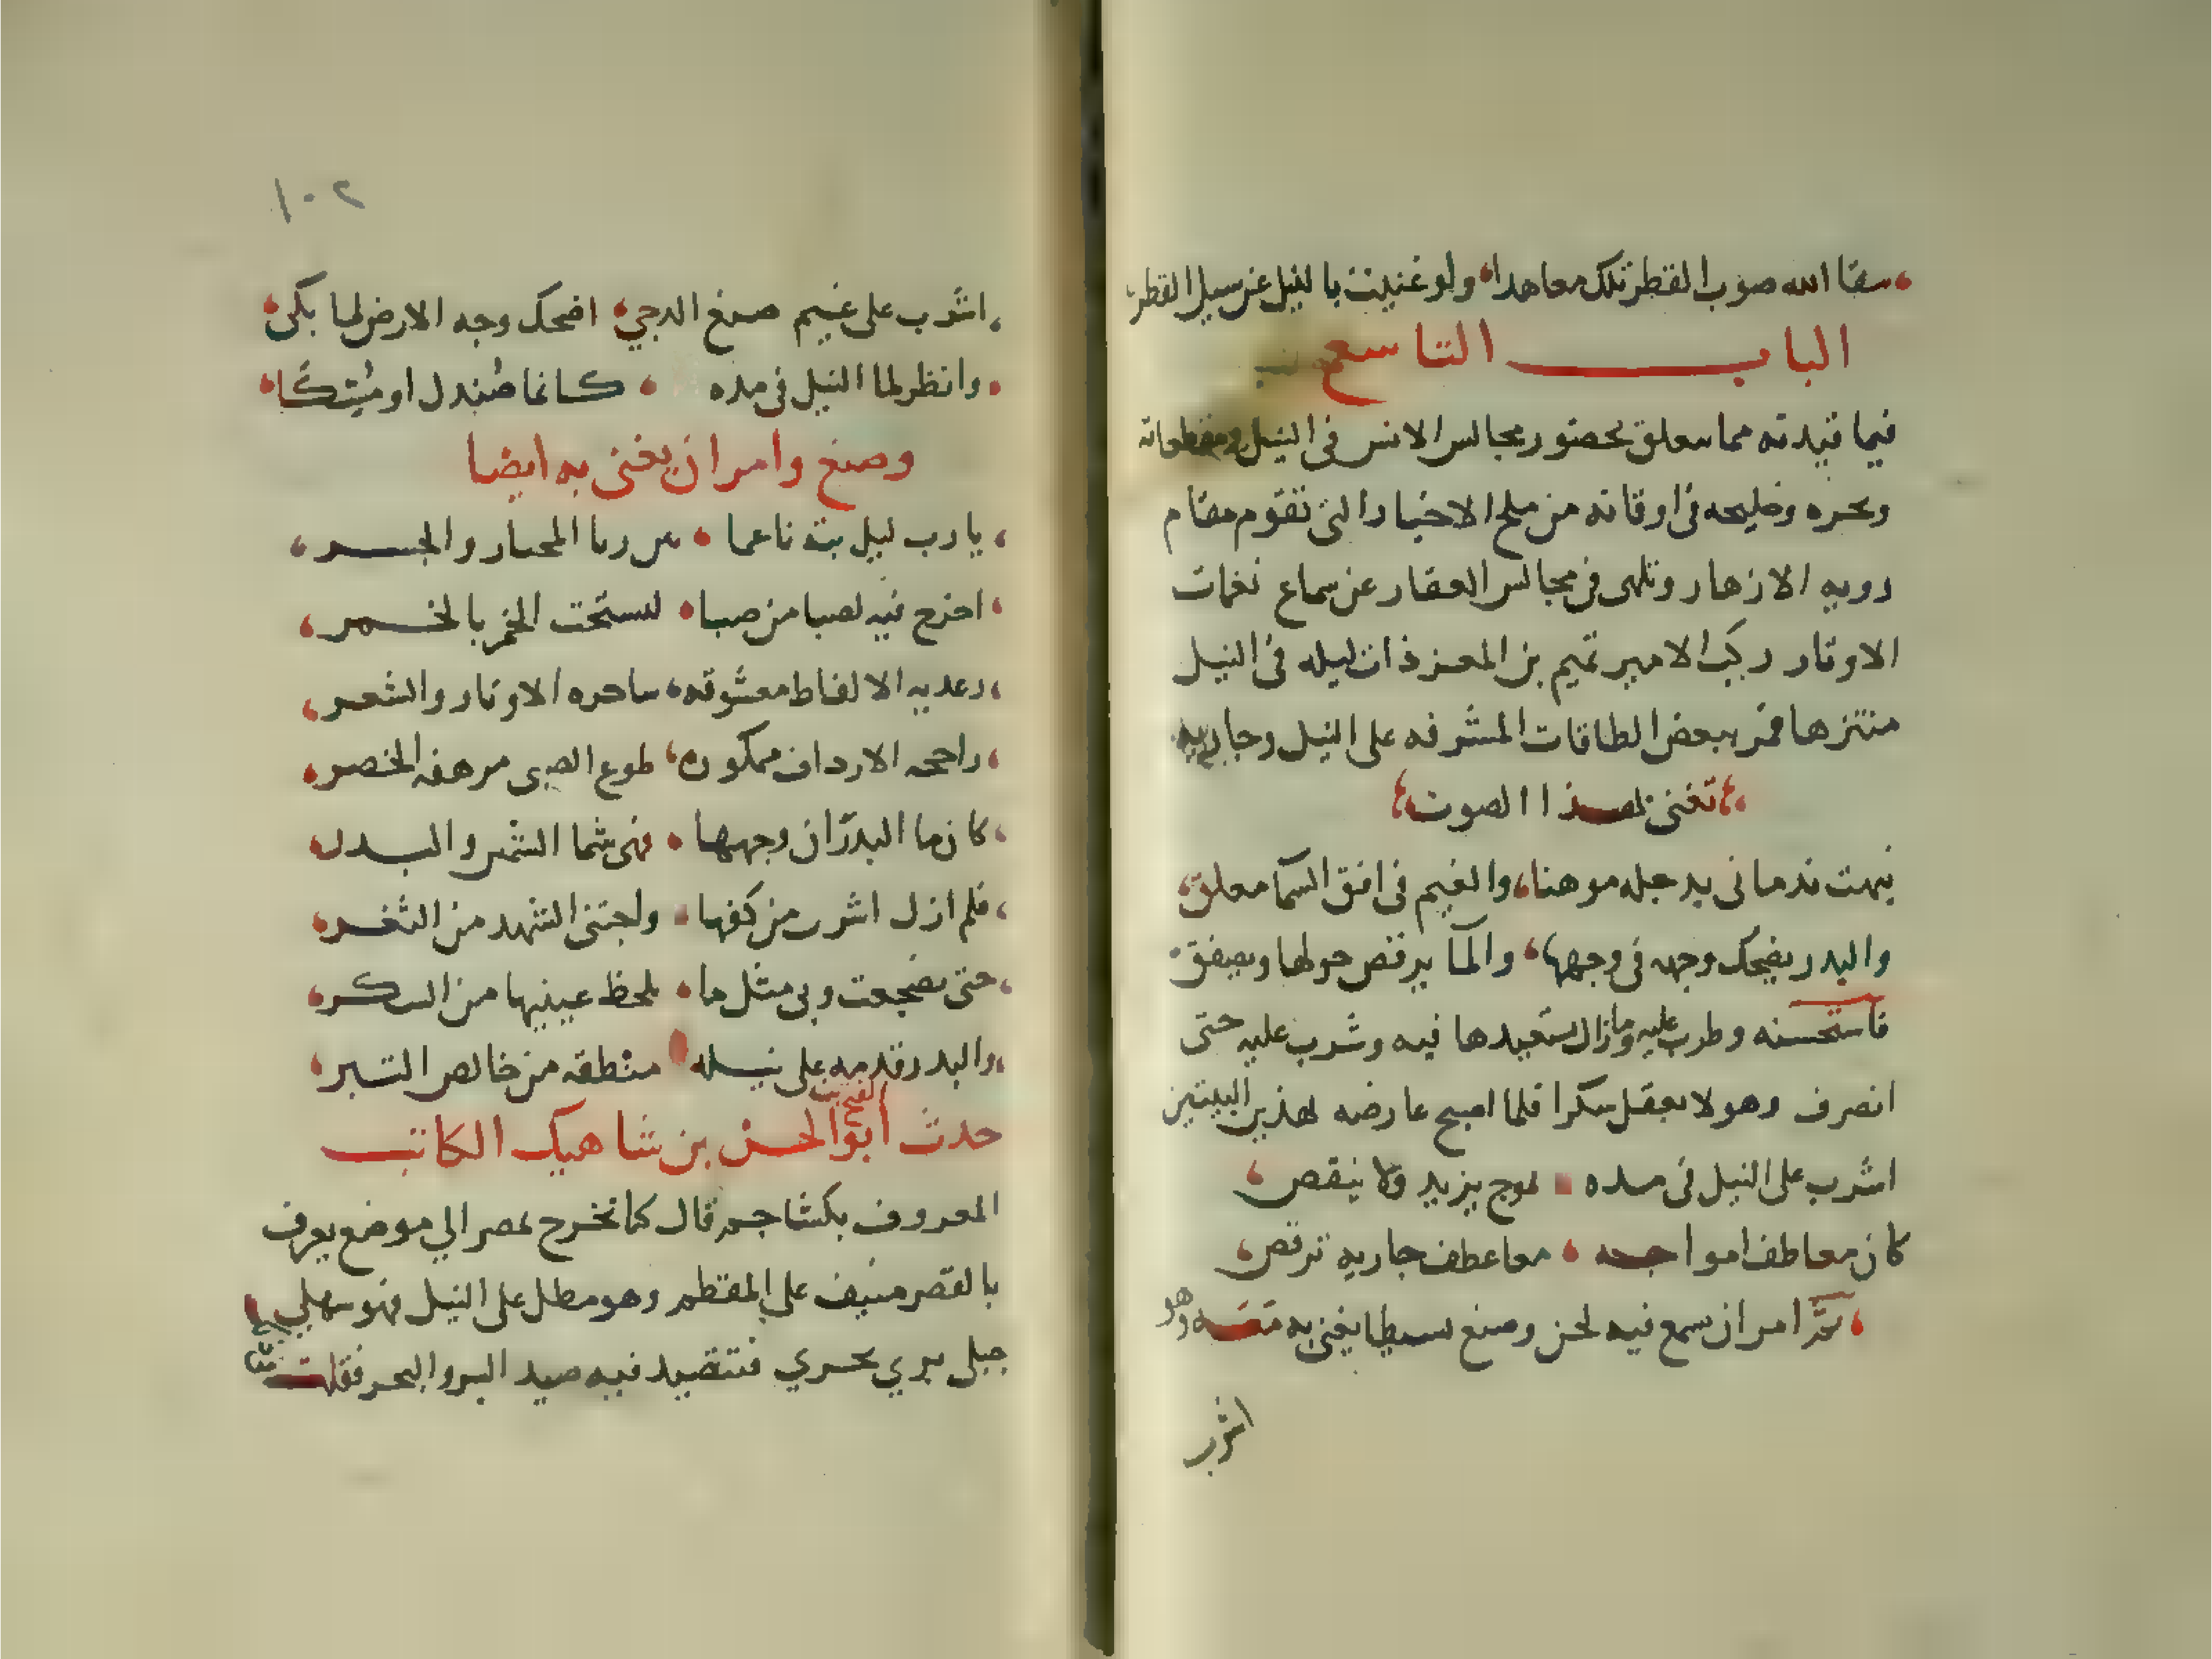 سقا الله صوب القطر تلك معاهدا ولو غنيت بالنيل عن سبل القطر
الباب التاسع
فيما قيدته مما سعلق بحضور مجالس الانس فى النيل
وبحره وخليجه فى اوقاته من ملح الاخبار التى تقوم مقام
رويه الازهار وتلهى فى مجالس العقار عن سماع نغمات
الاوتار ركب الامير تميم بن المعز ذات ليله فى النيل
متنزها فمر ببعض الطاقات المشرفه على النيل وجاريه
تغنى بهذا الصوت
نبهت ندمانى بدجله موهنا والغيم فى افق السما معلق
والبدر يضحك وجهه فى وجهها والما يرقص حولها ويصفق
فاستحسنه وطرب عليه وما زال يستعيدها فيه وشرب عليه حتى
انصرف وهو لا يعقل سكرا فلما اصبح عارضه بهذين البيتين
اشرب على النيل فى مده بموج يزيد ولا ينقص
كان معاطف امواجه معاطف جاريه ترقص
ثم امر ان سمع فيه لحن وصنع بسيطا يغنى به وهو
اشرب
١٠٢
اشرب على غيم صبغ الدجي اضحك وجه الارض لما بكى
وانظر لما النيل فى مده كانما صندل او مستكا
وصنع وامر ان يغنى به ايضا
يا رب ليل بته ناعما والجسر
امزج فيه لصبا من صبا الخمر بالخمر
رعديه الالفاظ معشوقه ساحره الاوتار والشعر
راجحه الارداف ممكوره طوع الصبى مرهفه الخصر
كانما البدران وجهها فهى شما الشمس والبدر
فلم ازل اشرب من كفها واجتنى الشهد من الثغر
حتى تضجعت وبى مثل ما بلحظ عينيها من السكر
والبدر قد مد على نيله منطقه من خالص التبر
حدث ابو الفتح الحسن بن شاهيك الكاتب
المعروف بكشاجم قال كنا نخرج بمصر الي موضع يعرف
بالقصر منيف علي المقطم وهو مطل على النيل فهو سهلي
جبلي بري بحري فنتصيد فيه صيد البر والبحر فقلت